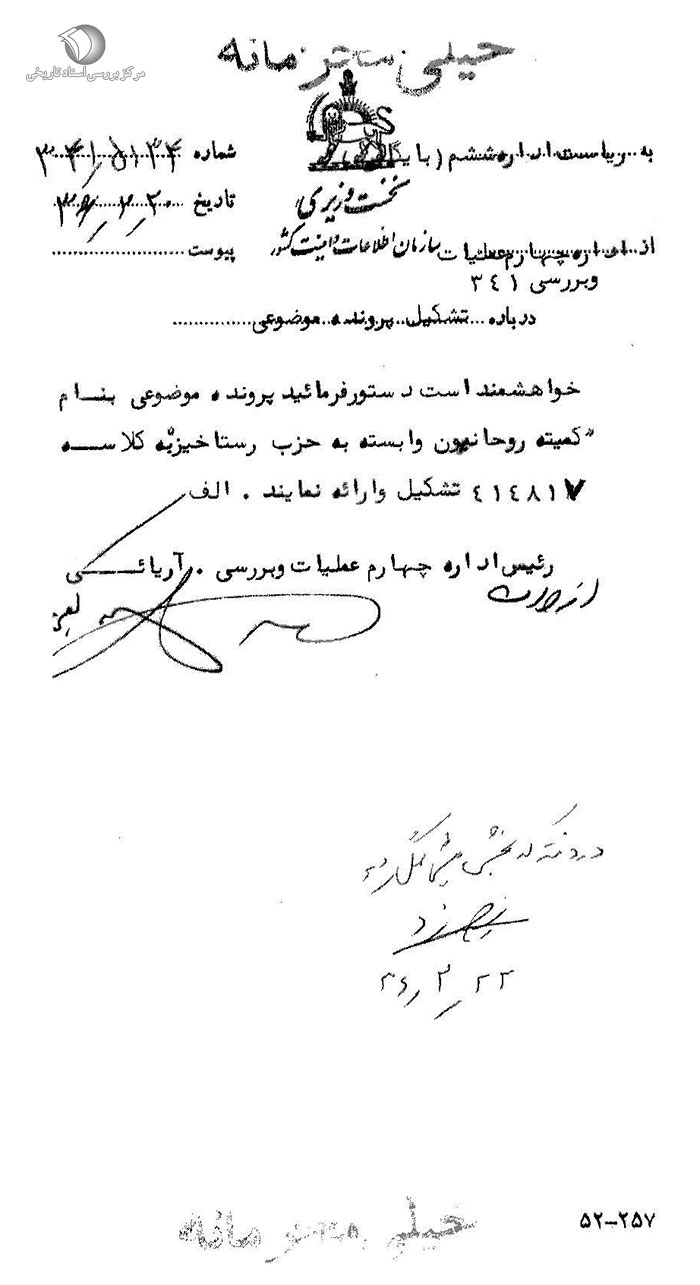 مرکز بررسی اسناد تاریخی
خیلی محرمانه
به ریاست اداره ششم (بایگانی
شماره ۳۴۱/۵۱۳۴
نخست وزیری
تاریخ
سازمان اطلاعات و امنیت کشور
از اداره چهارم عملیات
وبررسی ۳۴۱
پیوست
درباره تشکیل پرونده موضوعی
خواهشمند است دستور فرمائید پرونده موضوعی بنام
"کمیته روحانیون وابسته به حزب رستاخیز" به کلاسه
۴۱۴۸۱۷ تشکیل وارائه نمایند . الف
رئیس اداره چهارم عملیات وبررسی . آریائی
از طرف
۳۶/۳/۲۳
۵۲-۲۵۷
خیلی محرمانه